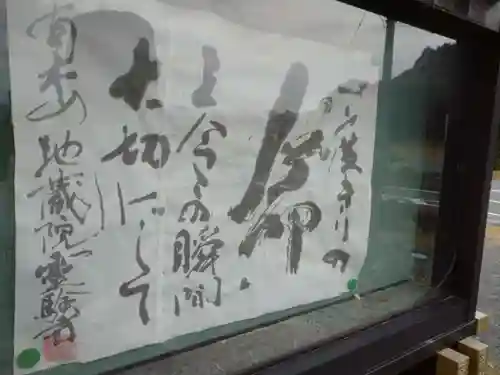 一度きりの
命
を今この瞬間
大切にして
南木山地蔵院